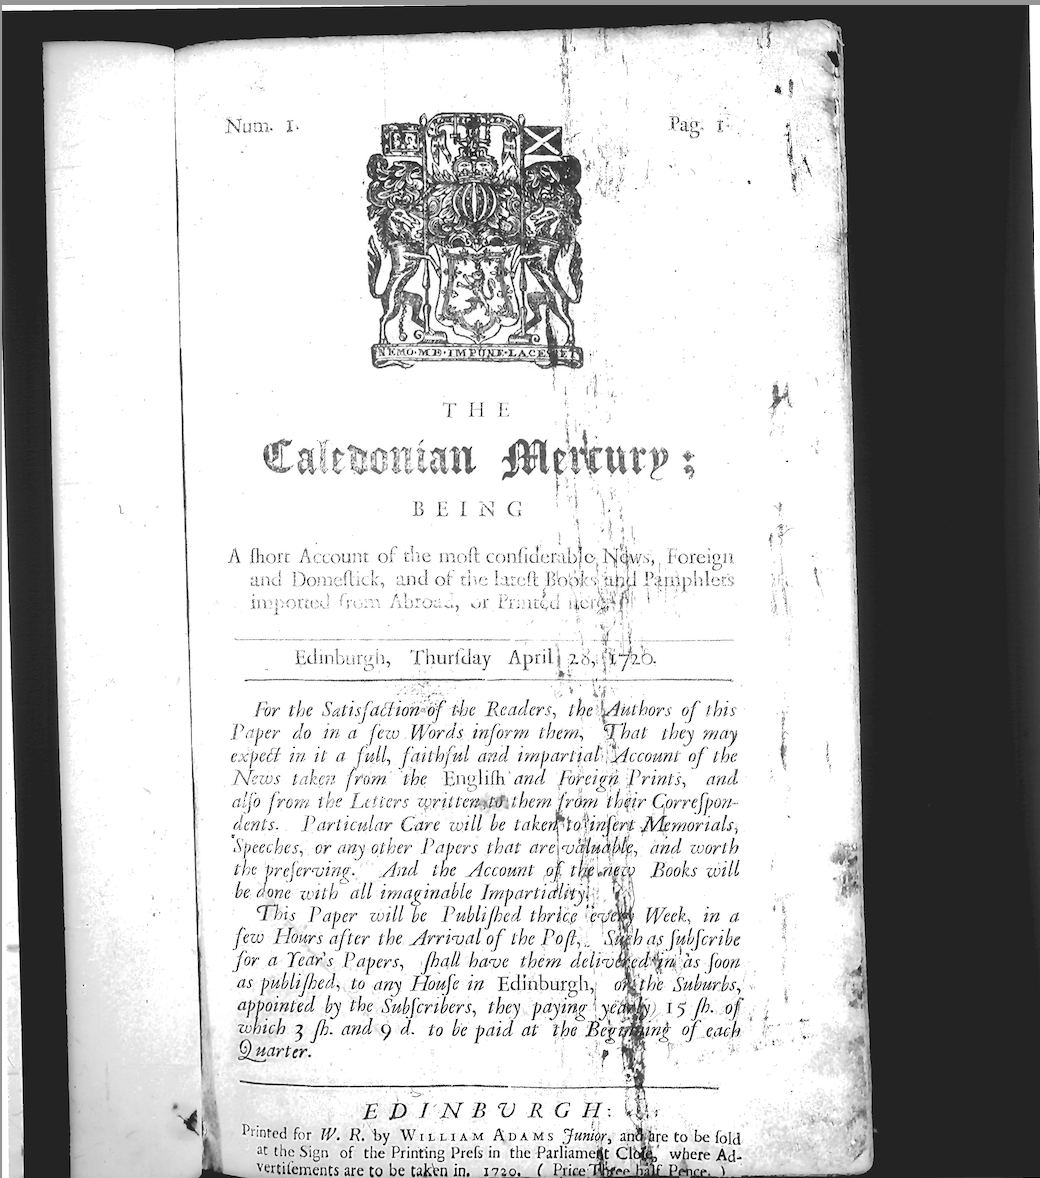 Num. 1.
Pag. 1
NEMO·ME·IMPUNE·LACESSET
THE
Caledonian Mercury:
BEING
A ſhort Account of the moſt conſiderable News, Foreign
and Domeſtick, and of the lateſt Books and Pamphlets
imported from Abroad, or Printed here.
Edinburgh, Thurſday April 28, 1720.
For the Satisſaction of the Readers, the Authors of this
Paper do in a few Words inform them, That they may
expect in it a full, faithful and impartial Account of the
News taken from the Engliſh and Foreign Prints, and
alſo from the Letters written to them from their Correſpon-
dents. Particular Care will be taken to inſert Memorials,
Speeches, or any other Papers that are valuable, and worth
the preſerving. And the Account of the new Books will
be done with all imaginable Impartiality.
This Paper will be Publiſhed thrice every Week, in a
few Hours after the Arrival of the Poſt, Such as ſubſcribe
for a Year's Papers, ſhall have them delivered in as ſoon
as publiſhed, to any Houſe in Edinburgh, or the Suburbs,
appointed by the Subſcribers, they paying yearly 15 ſh. of
which 3 ſh. and 9 d. to be paid at the Beginning of each
Quarter.
EDINBURGH:
Printed for W. R. by WILLIAM ADAMS Junior, and are to be ſold
at the Sign of the Printing Preſs in the Parliament Cloſe, where Ad-
vertiſements are to be taken in. 1720. ( Price Three half Pence. )